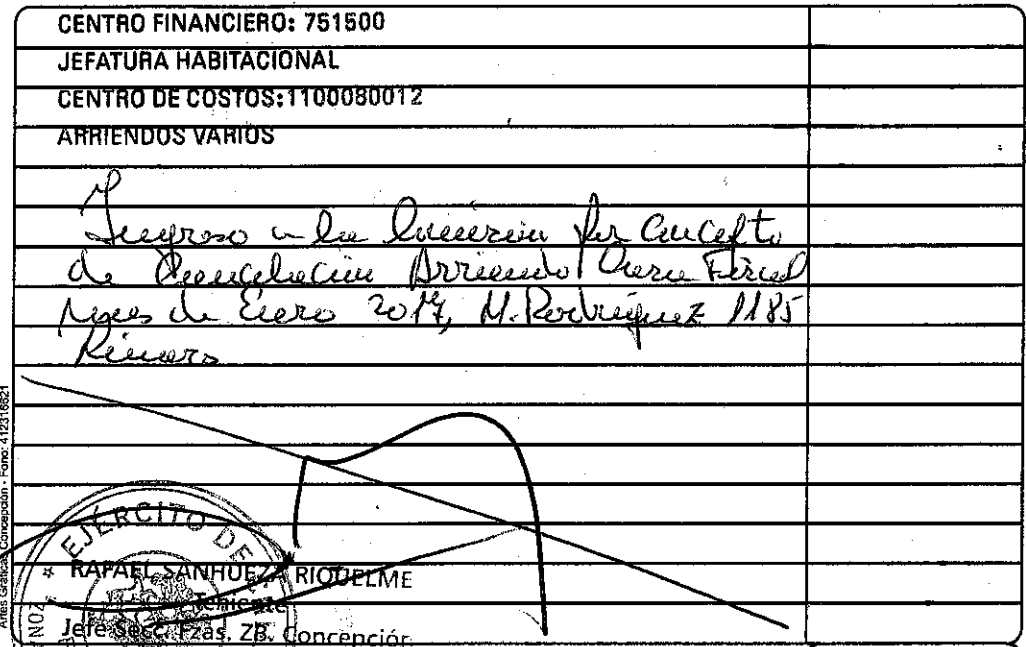 CENTRO FINANCIERO: 751500
JEFATURA HABITACIONAL
CENTRO DE COSTOS:1100080012
ARRIENDOS VARIOS
Ingreso
de Cancelación Arriendo Casa Fiscal
mes de Enero 2017, M. Rodriguez 1185
Artes Graficas Concepción - Fono: 412316621
EJÉRCITO DE
RAFAEL SANHUEZA RIQUELME
Teniente
Jefe Secc. Fzas. ZB. Concepción